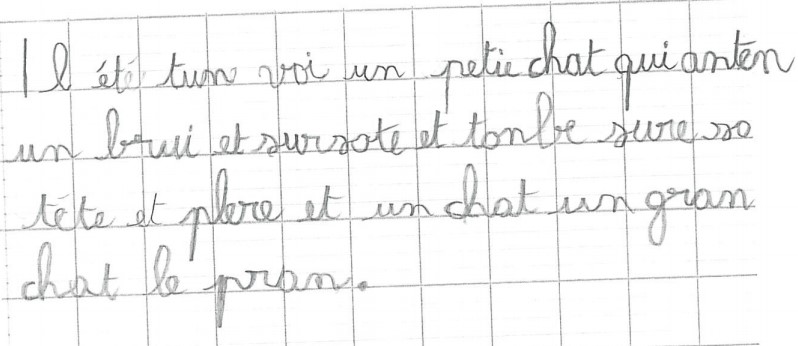 Il été tun voi un petit chat qui anten
un brui et sursote et tonbe sure sa
tête et plere et un chat un gran
chat le pran.